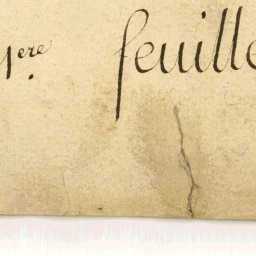 1ere. feuille